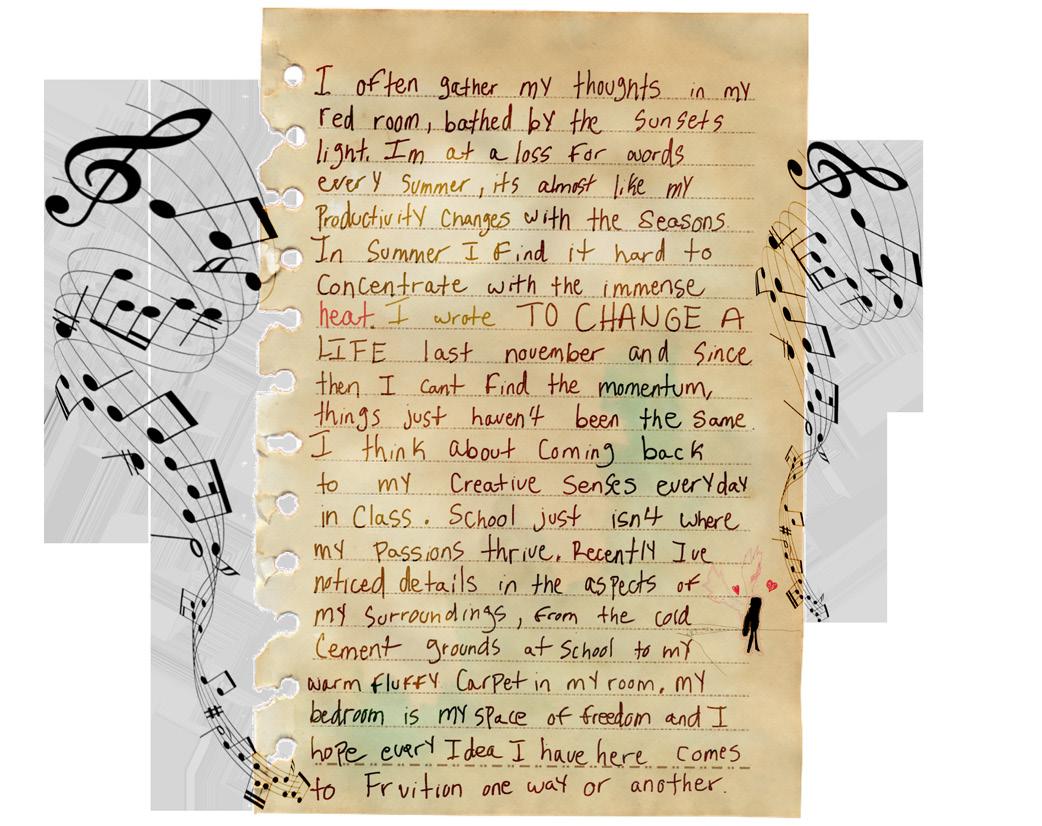 I often gather my thoughts in my
red room, bathed by the sunsets
light. Im at a loss for words
every summer, its almost like my
Productivity changes with the seasons.
In summer I find it hard to
concentrate with the immense
heat. I wrote TO CHANGE A
LIFE last november and since
then I cant find the momentum,
things just haven't been the same.
I think about coming back
to my creative senses everyday
in class. School just isn't where
my passions thrive. Recently Ive
noticed details in the aspects of
my surroundings, from the cold
cement grounds at school to my
warm fluffy carpet in my room. my
bedroom is my space of freedom and I
hope every Idea I have here comes
to Fruition one way or another.